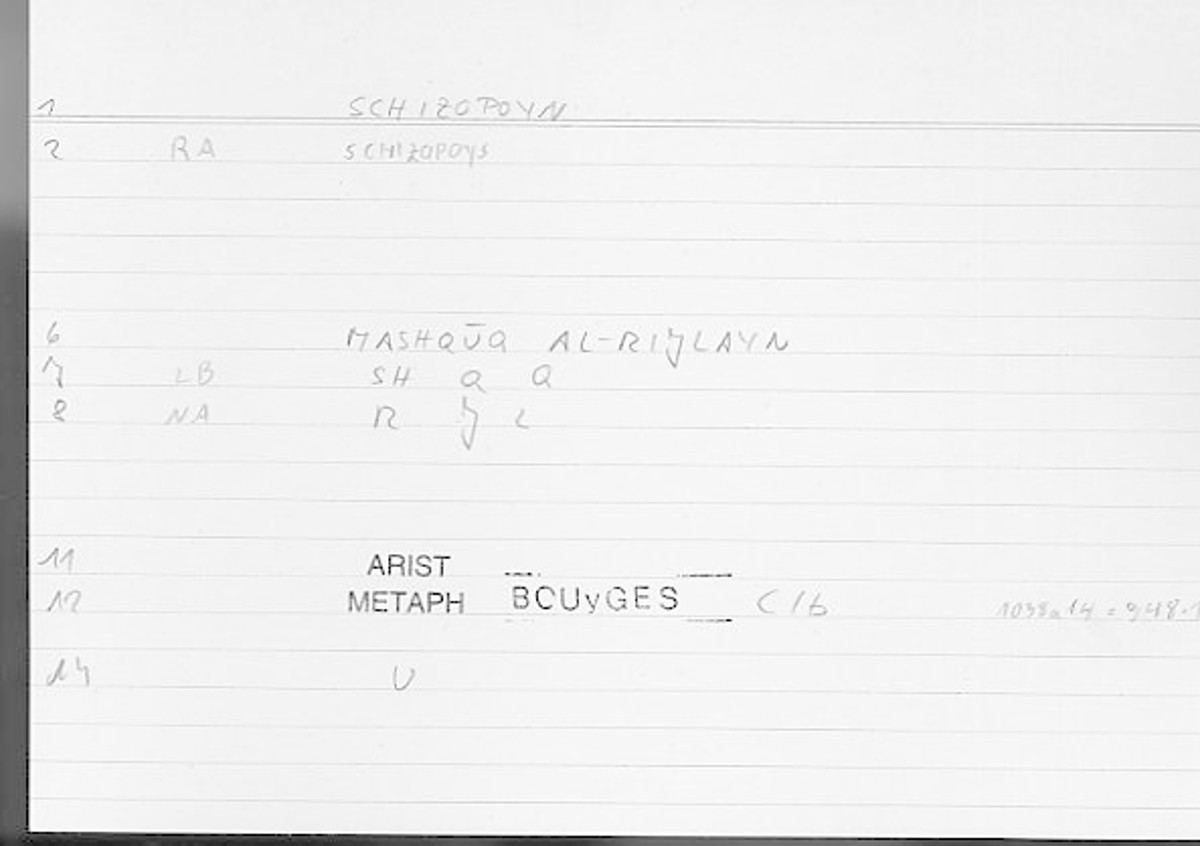 1 SCHIZOPOYN
2 RA SCHIZOPOYS
6 MASHQŪQ AL-RIJLAYN
7 LB SH Q Q
8 NA R J L
11 ARIST
12 METAPH BOUyGES C 16 1038a14 = 948.1
14 U